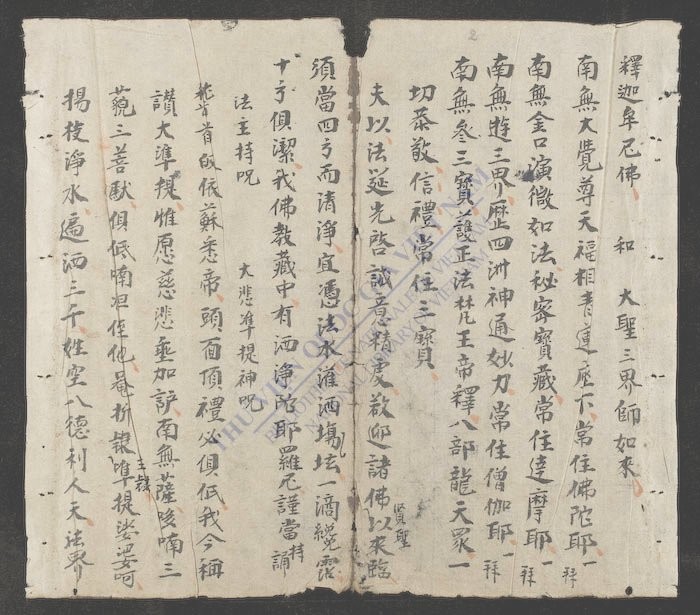 釋迦牟尼佛 和 大聖三界師如來
南無大覺尊天福相青蓮座下常住佛陀耶一拜
南無金口演微如法秘密寶藏常住達摩耶一拜
南無遊三界歷四洲神通妙力常住僧伽耶一拜
南無參三寶護正法梵王帝釋八部龍天眾一
切恭敬信禮常住三寶
夫以法筵先啓誠意精虔欲迎諸佛以來臨賢聖
須當四方而清淨宜憑法水灌洒塲坛一滴纔露
十方俱潔我佛教藏中有洒淨陀耶羅尼謹當持誦
法主持呪 大悲準提神呪
稽首皈依蘇悉帝頭面頂禮必俱低我今稱
讚大準提惟愿慈悲垂加護南無薩哆喃三
藐三菩馱俱低喃怛侄他唵折隸主隸準提娑婆呵
楊枝淨水遍洒三千姓空八德利人天法界
THƯ VIỆN QUỐC GIA VIỆT NAM
NATIONAL LIBRARY OF VIETNAM
2